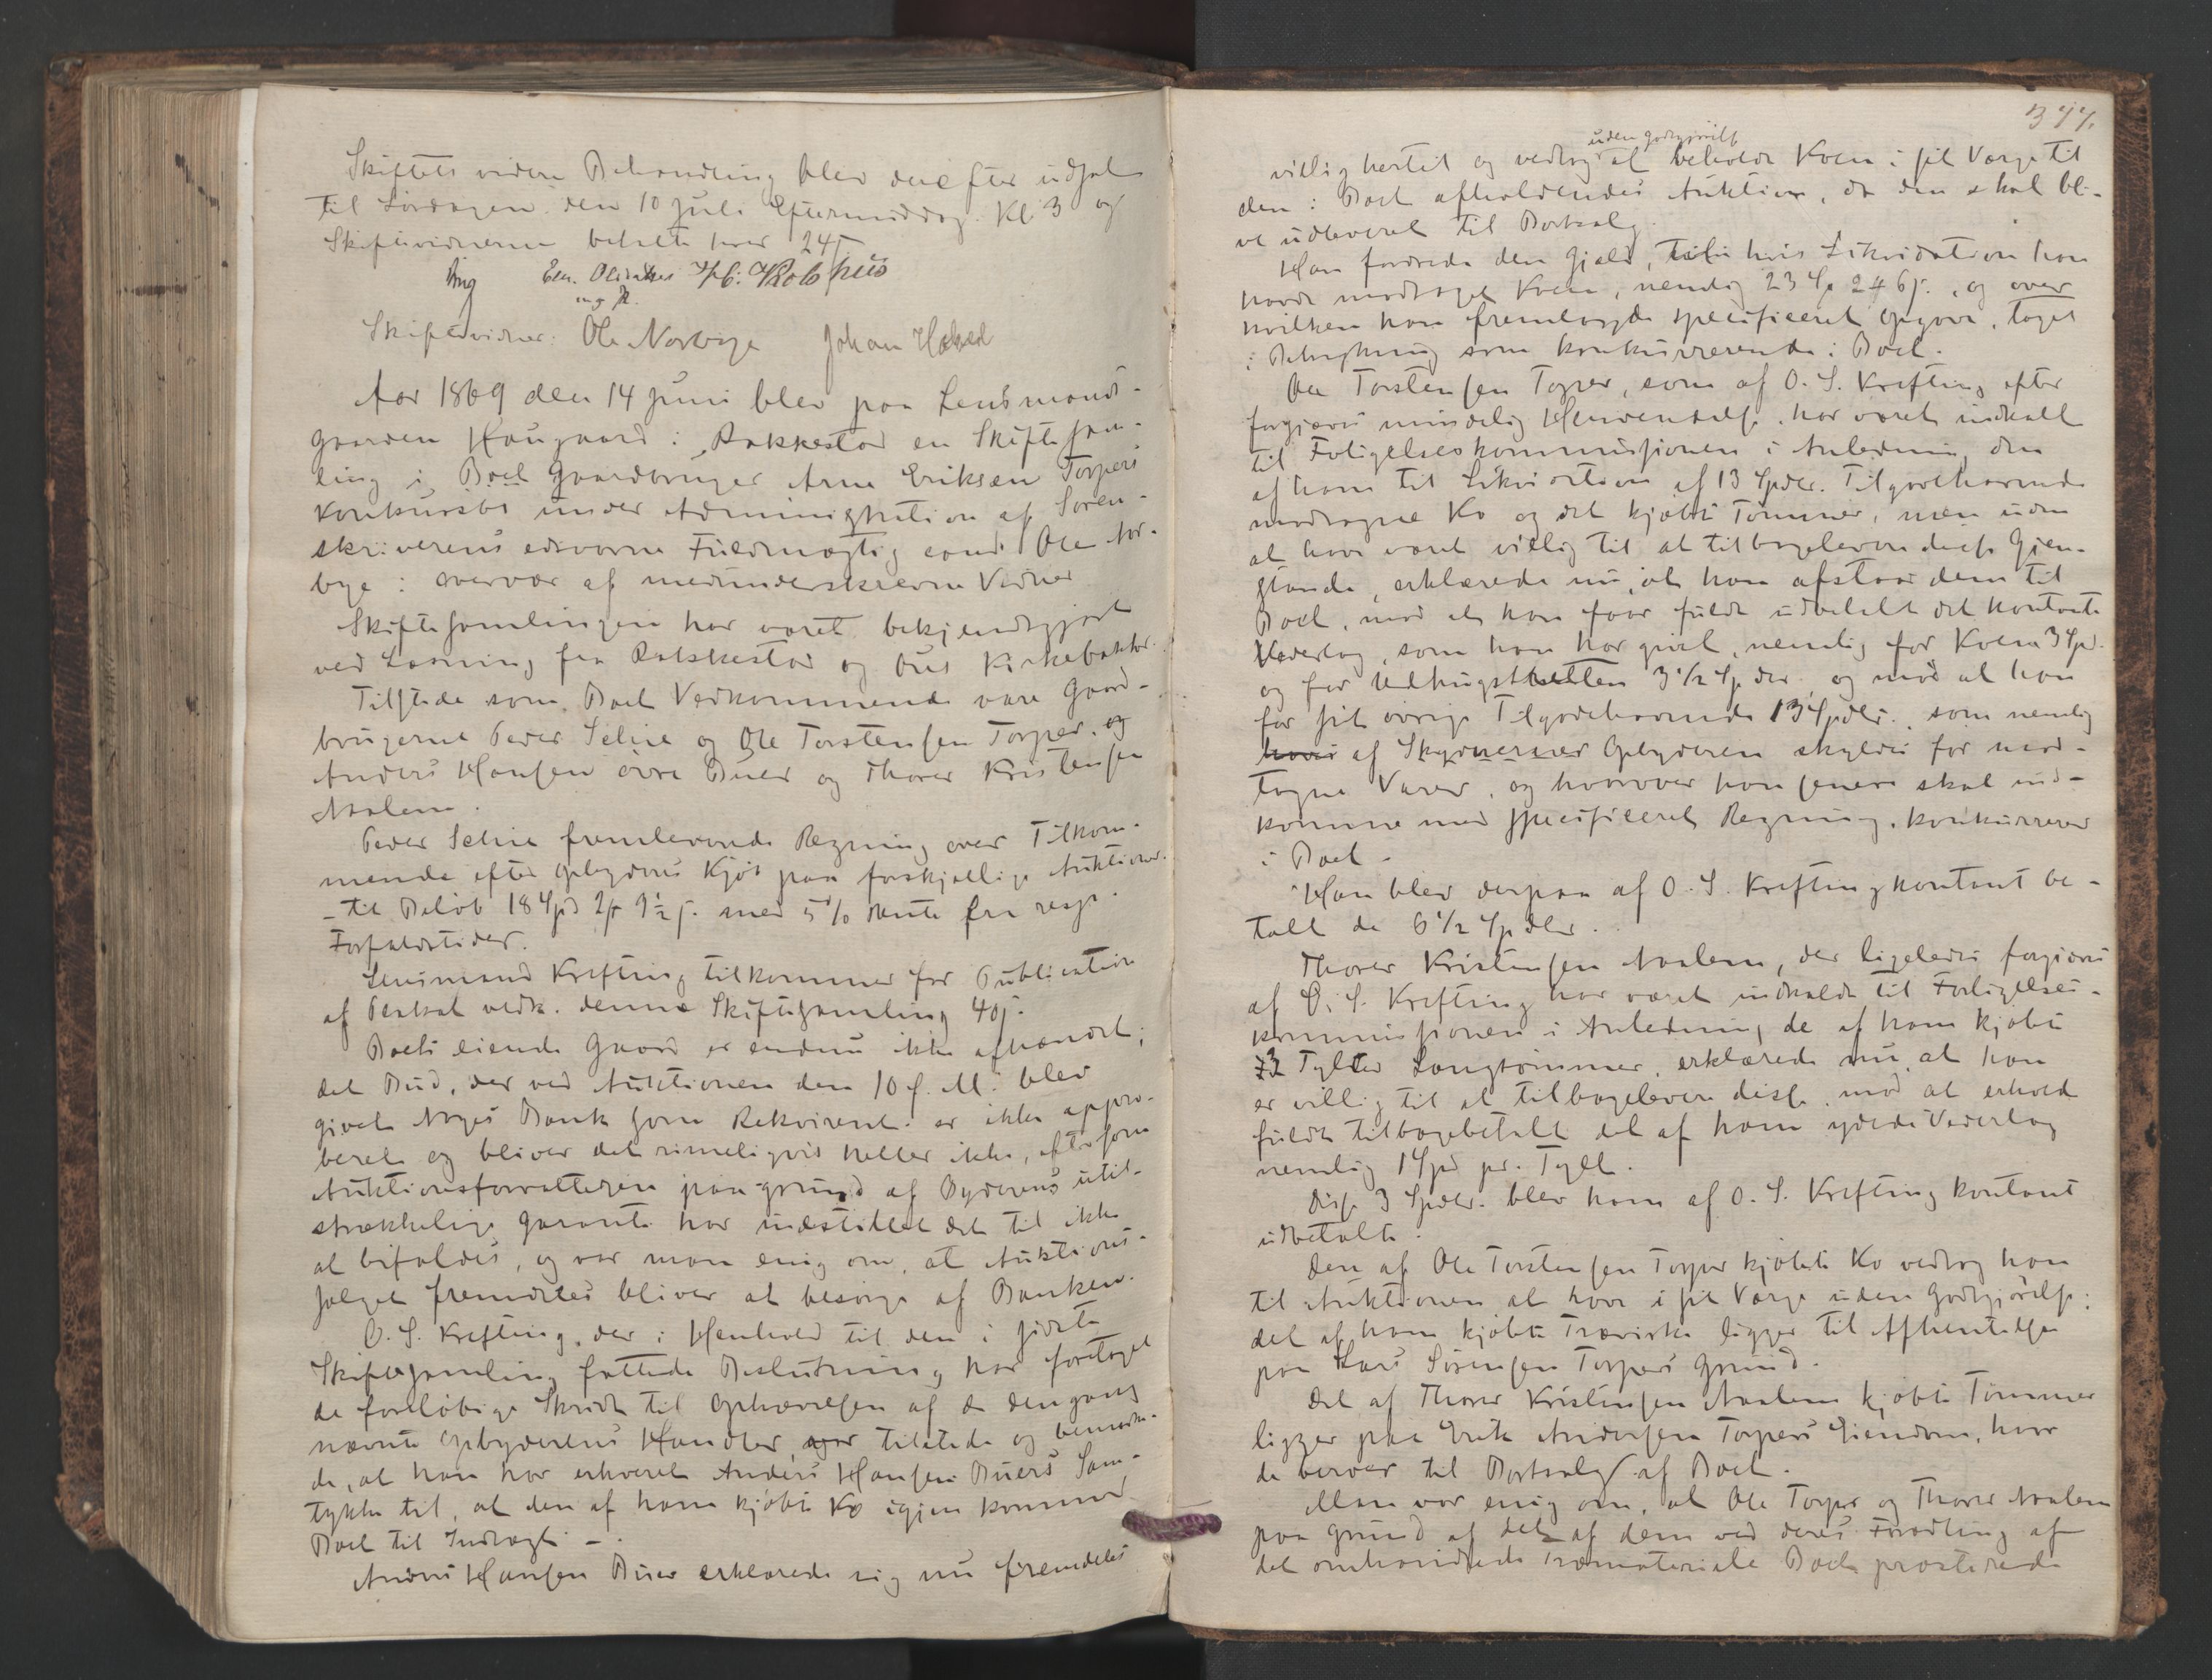 Skiftets videre Behandling blev derefter udsat
til Lørdagen den 10 Juli Eftermiddag Kl 3 og
Skiftevidnerne betalte hver 24 s
Em. Olsen H. C. Kolshus
m. p. P.
Skiftevidner: Ole Norbye Johan Habed
Aar 1869 den 14 Juni blev paa Lensmands-
gaarden Haugaard i Rakkestad en Skiftesam-
ling i Boet Gaardbruger Arne Eriksen Torpers
Konkursbo under Administration af Soren-
skriverens edsvorne Fuldmægtig cand. Ole Nor-
bye i overvær af medunderskrevne Vidner
Skiftesamlingen har været bekjendtgjort
ved Læsning fra Rakkestad og Øus Kirkebakker.
Tilstede som Boet Vedkommende vare Gaard-
brugerne Peder Selne og Ole Torstensen Torper, og
Anders Hansen øvre Buer og Thorer Kristensen
Aaslem.
Peder Selne fremleverede Regning over Tilkom-
mende efter Opbyderens Kjøb paa forskjellige Auktioner
- til Beløb 18 Spd 2 # 9½ s. med 5 % Rente fra resp.
Forfaldstider.
Lensmand Krefting tilkommer for Publication
af Plakat vedk. denne Skiftesamling 40 s.
Boets eiende Gaard er endnu ikke afhændet;
det Bud, der ved Auktionen den 10 f. M. blev
givet Norges Bank som Rekvirent er ikke appro-
beret og bliver det rimeligvis heller ikke, eftersom
Auktionsforvalteren paa grund af Byderens util-
strækkelige Garanti har indstillet det til ikke
at bifaldes, og var man enig om, at Auktions-
salget fremdeles bliver at besørge af Banken.
O. S. Krefting, der i Henhold til den i sidste
Skiftesamling fattede Beslutning har foretaget
de foreløbige Skridt til Ophævelsen af de dengang
nævnte Opbyderens Handler, var tilstede og bemærke-
de, at han har erhvervet Anders Hansen Buers Sam-
tykke til, at den af ham kjøbte Ko igjen kommer
Boet til Indtægt -
Anders Hansen Buer erklærede sig nu fremdeles
377.
uden Godtgjørelse
villig hertil og vedtog at beholde Koen i sit Værge til
den i Boet afholdendes Auktion, da den skal bli-
ve udleveret til Bortsalg.
Han fordrede den Gjæld, til hvis Likvidation han
havde modtaget Koen, nemlig 23 Sp 2 # 6 s., og over
hvilken han fremlagde specificeret Opgave, taget
i Betragtning som konkurrerende i Boet.
Ole Torstensen Torper, som af O. S. Krefting efter
forgjæves mindelig Henvendelse har været indkaldt
til Forligelseskommissionen i Anledning den
af ham til Likvidation af 13 Spdlr. Tilgodehavende
modtagne Ko og det kjøbte Tømmer, men uden
at have været villig til at tilbagelevere disse Gjen-
stande, erklærede nu, at han afstaar dem til
Boet, mod at han faar fuldt udbetalt det kontante
Vederlag, som han har givet, nemlig for Koen 3 Spd.
og for Udhugsthelten 3 ½ Spdlr. og mod at han
for sit øvrige Tilgodehavende 13 Spdlr., som nemlig
haves af Opbyderen skyldes for mod-
tagne Varer, og hvorover han senere skal ind-
komme med specificeret Regning, konkurrerer
i Boet -
Han blev derpaa af O. S. Krefting kontant be-
talt de 6 ½ Spdlr.
Thorer Kristensen Aaslem, der ligeledes forgjæves
af O. S. Krefting har været indkaldt til Forligelses-
kommissionen i Anledning de af ham kjøbte
3 Tylter Langtømmer, erklærede nu, at han
er villig til at tilbagelevere disse, mod at erholde
fuldt tilbagebetalt det af ham ydede Vederlag
nemlig 1 Spd pr. Tylt.
Disse 3 Spdlr. blev ham af O. S. Krefting kontant
udbetalt.
Den af Ole Torstensen Torper kjøbte Ko vedtog han
til Auktionen at have i sit Værge uden Godtgjørelse;
det af ham kjøbte Trævirke ligger til Afhentelse
paa Lars Sørensen Torpers Grund.
Det af Thorer Kristensen Aaslem kjøbte Tømmer
ligger paa Erik Andersen Torpers Eiendom, hvor
de beroer til Bortsalg af Boet.
Man var enig om, at Ole Torper og Thorer Aaslem
paa Grund af det af dem ved deres Foradling af
det omhandlede Træmateriale Boet præsterede